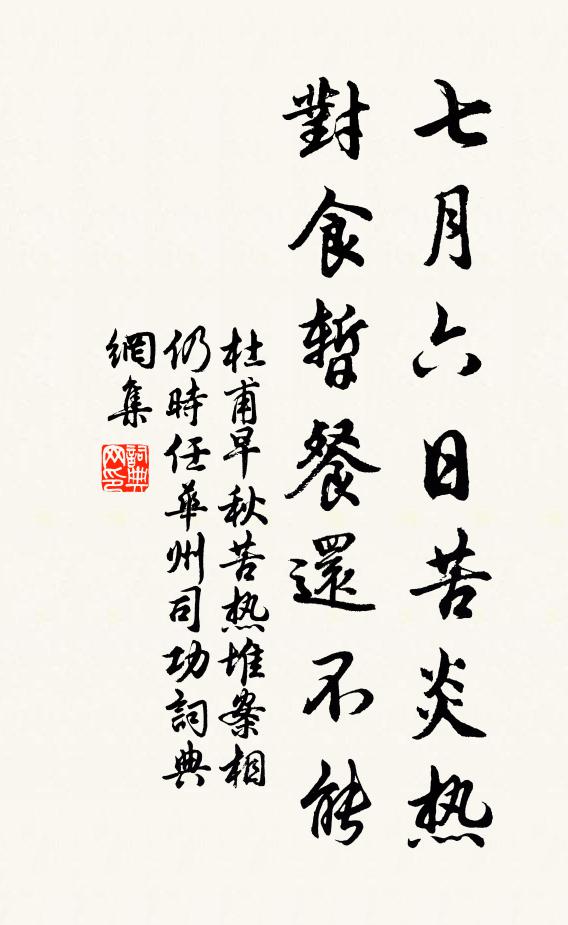 七月六日苦炎热
對食暫餐還不能
杜甫早秋苦热堆案相
仍時任華州司功詞典
網集
詞典網印